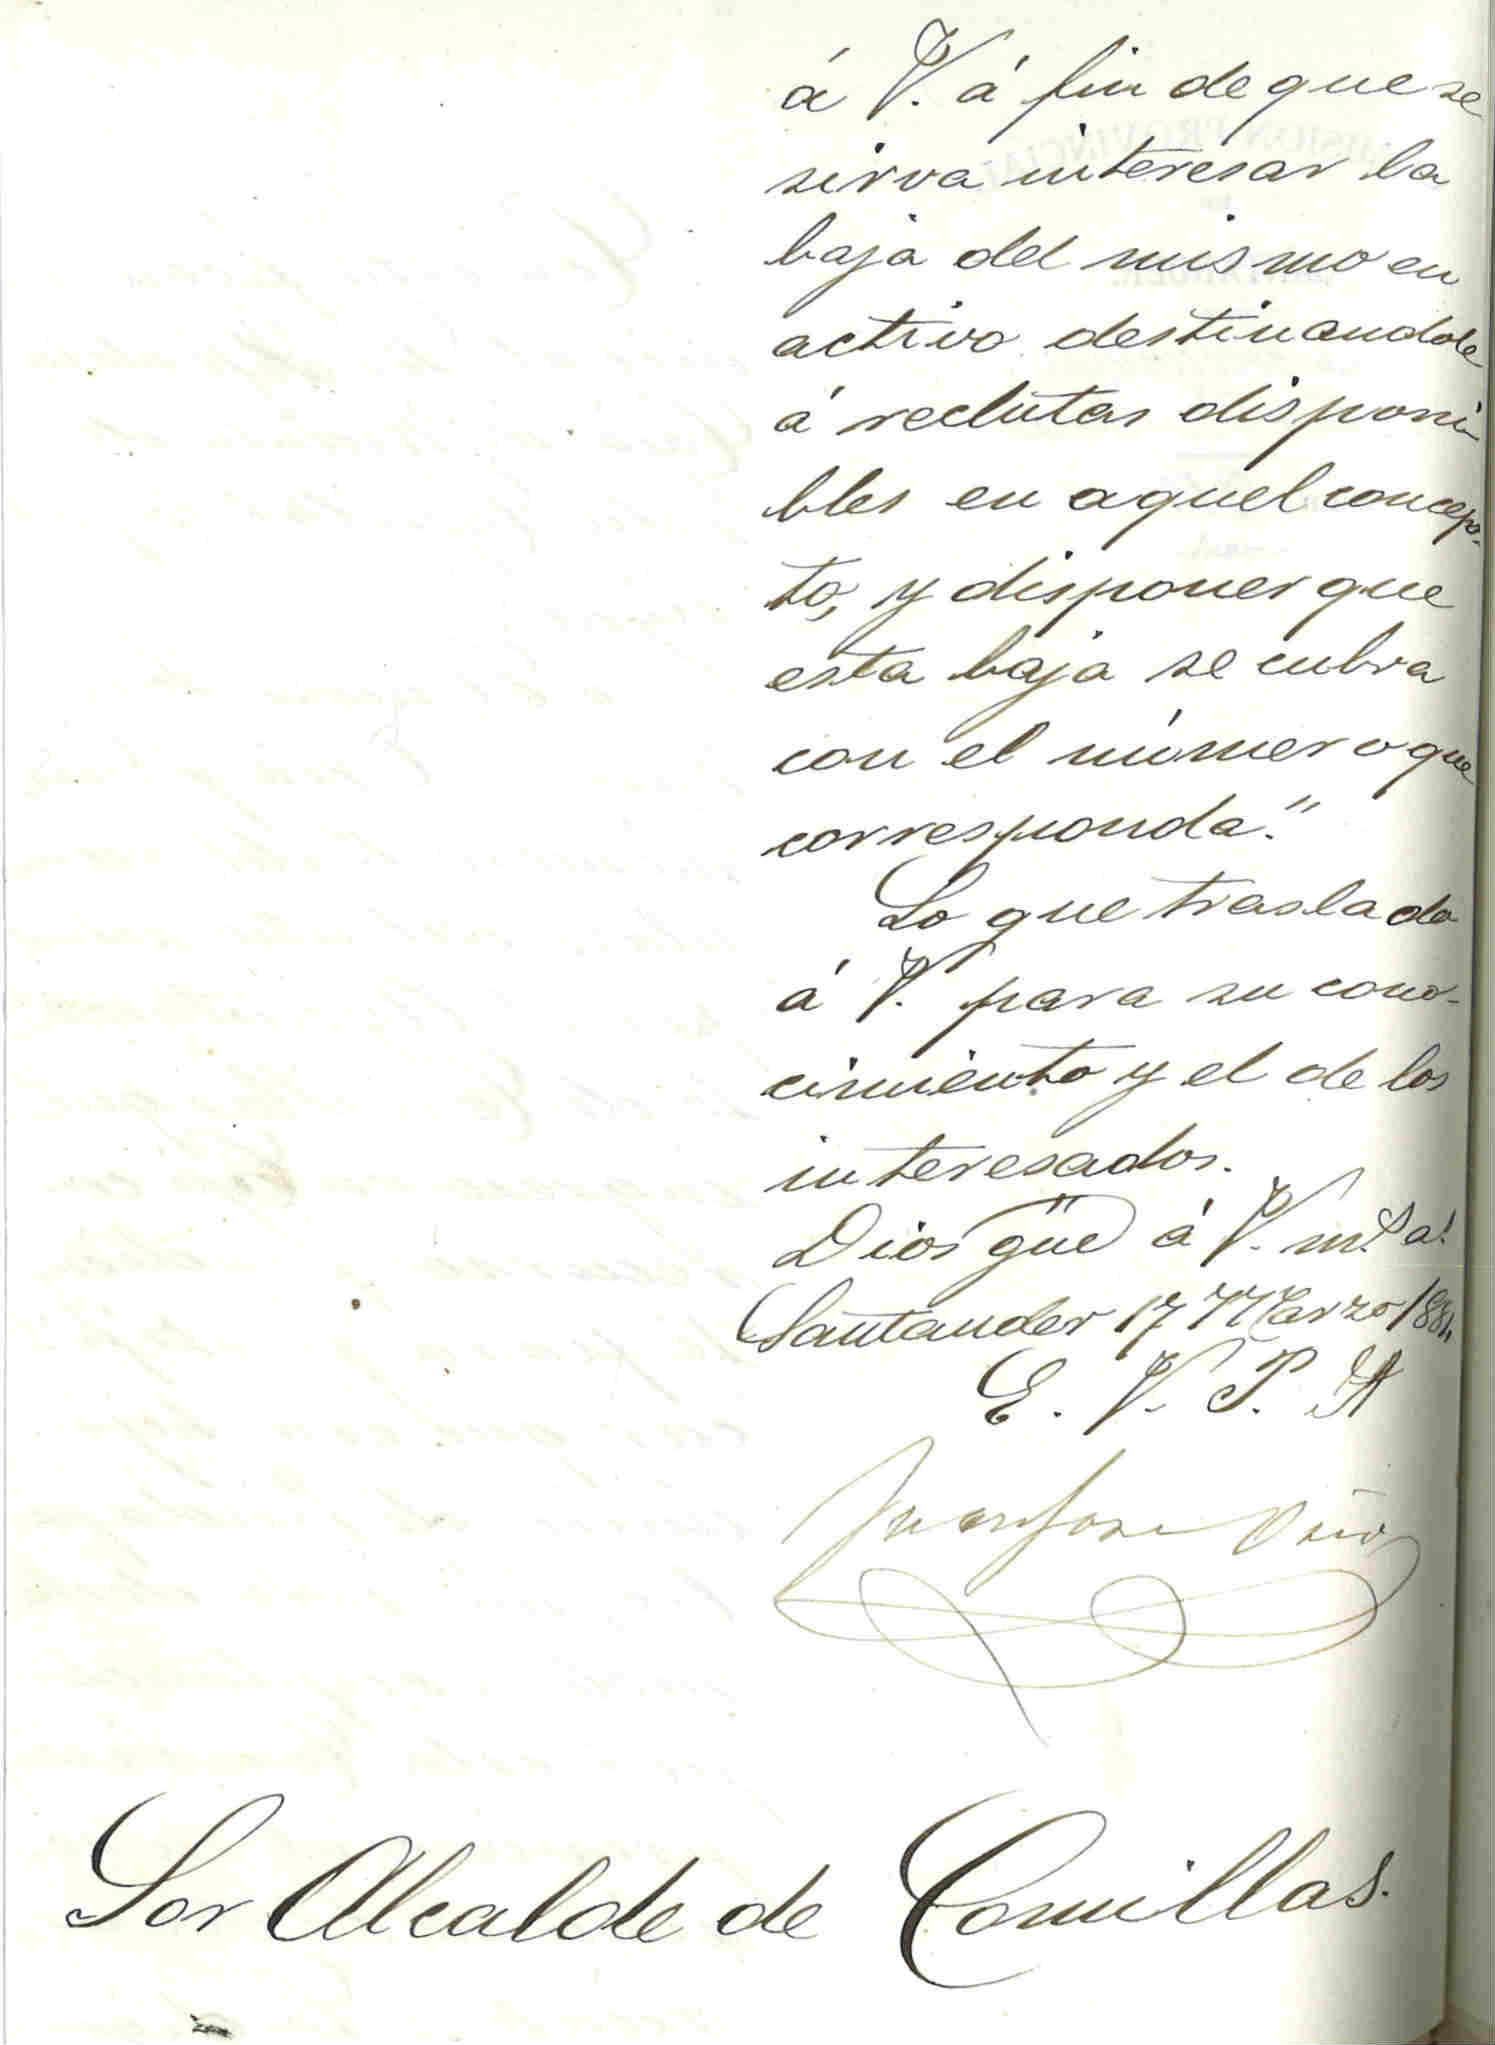 á V. á fin de que se
sirva interesar la
baja del mismo en
activo destinandole
á reclutas disponi-
bles en aquel concep-
to, y disponer que
esta baja se cubra
con el número que
corresponda."
Lo que traslado
á V. para su cono-
cimiento y el de los
interesados.
Dios güe á V. m.s a.s
Santander 17 Marzo 1884
E. V. P. A
Juan José
Sor Alcalde de Comillas.